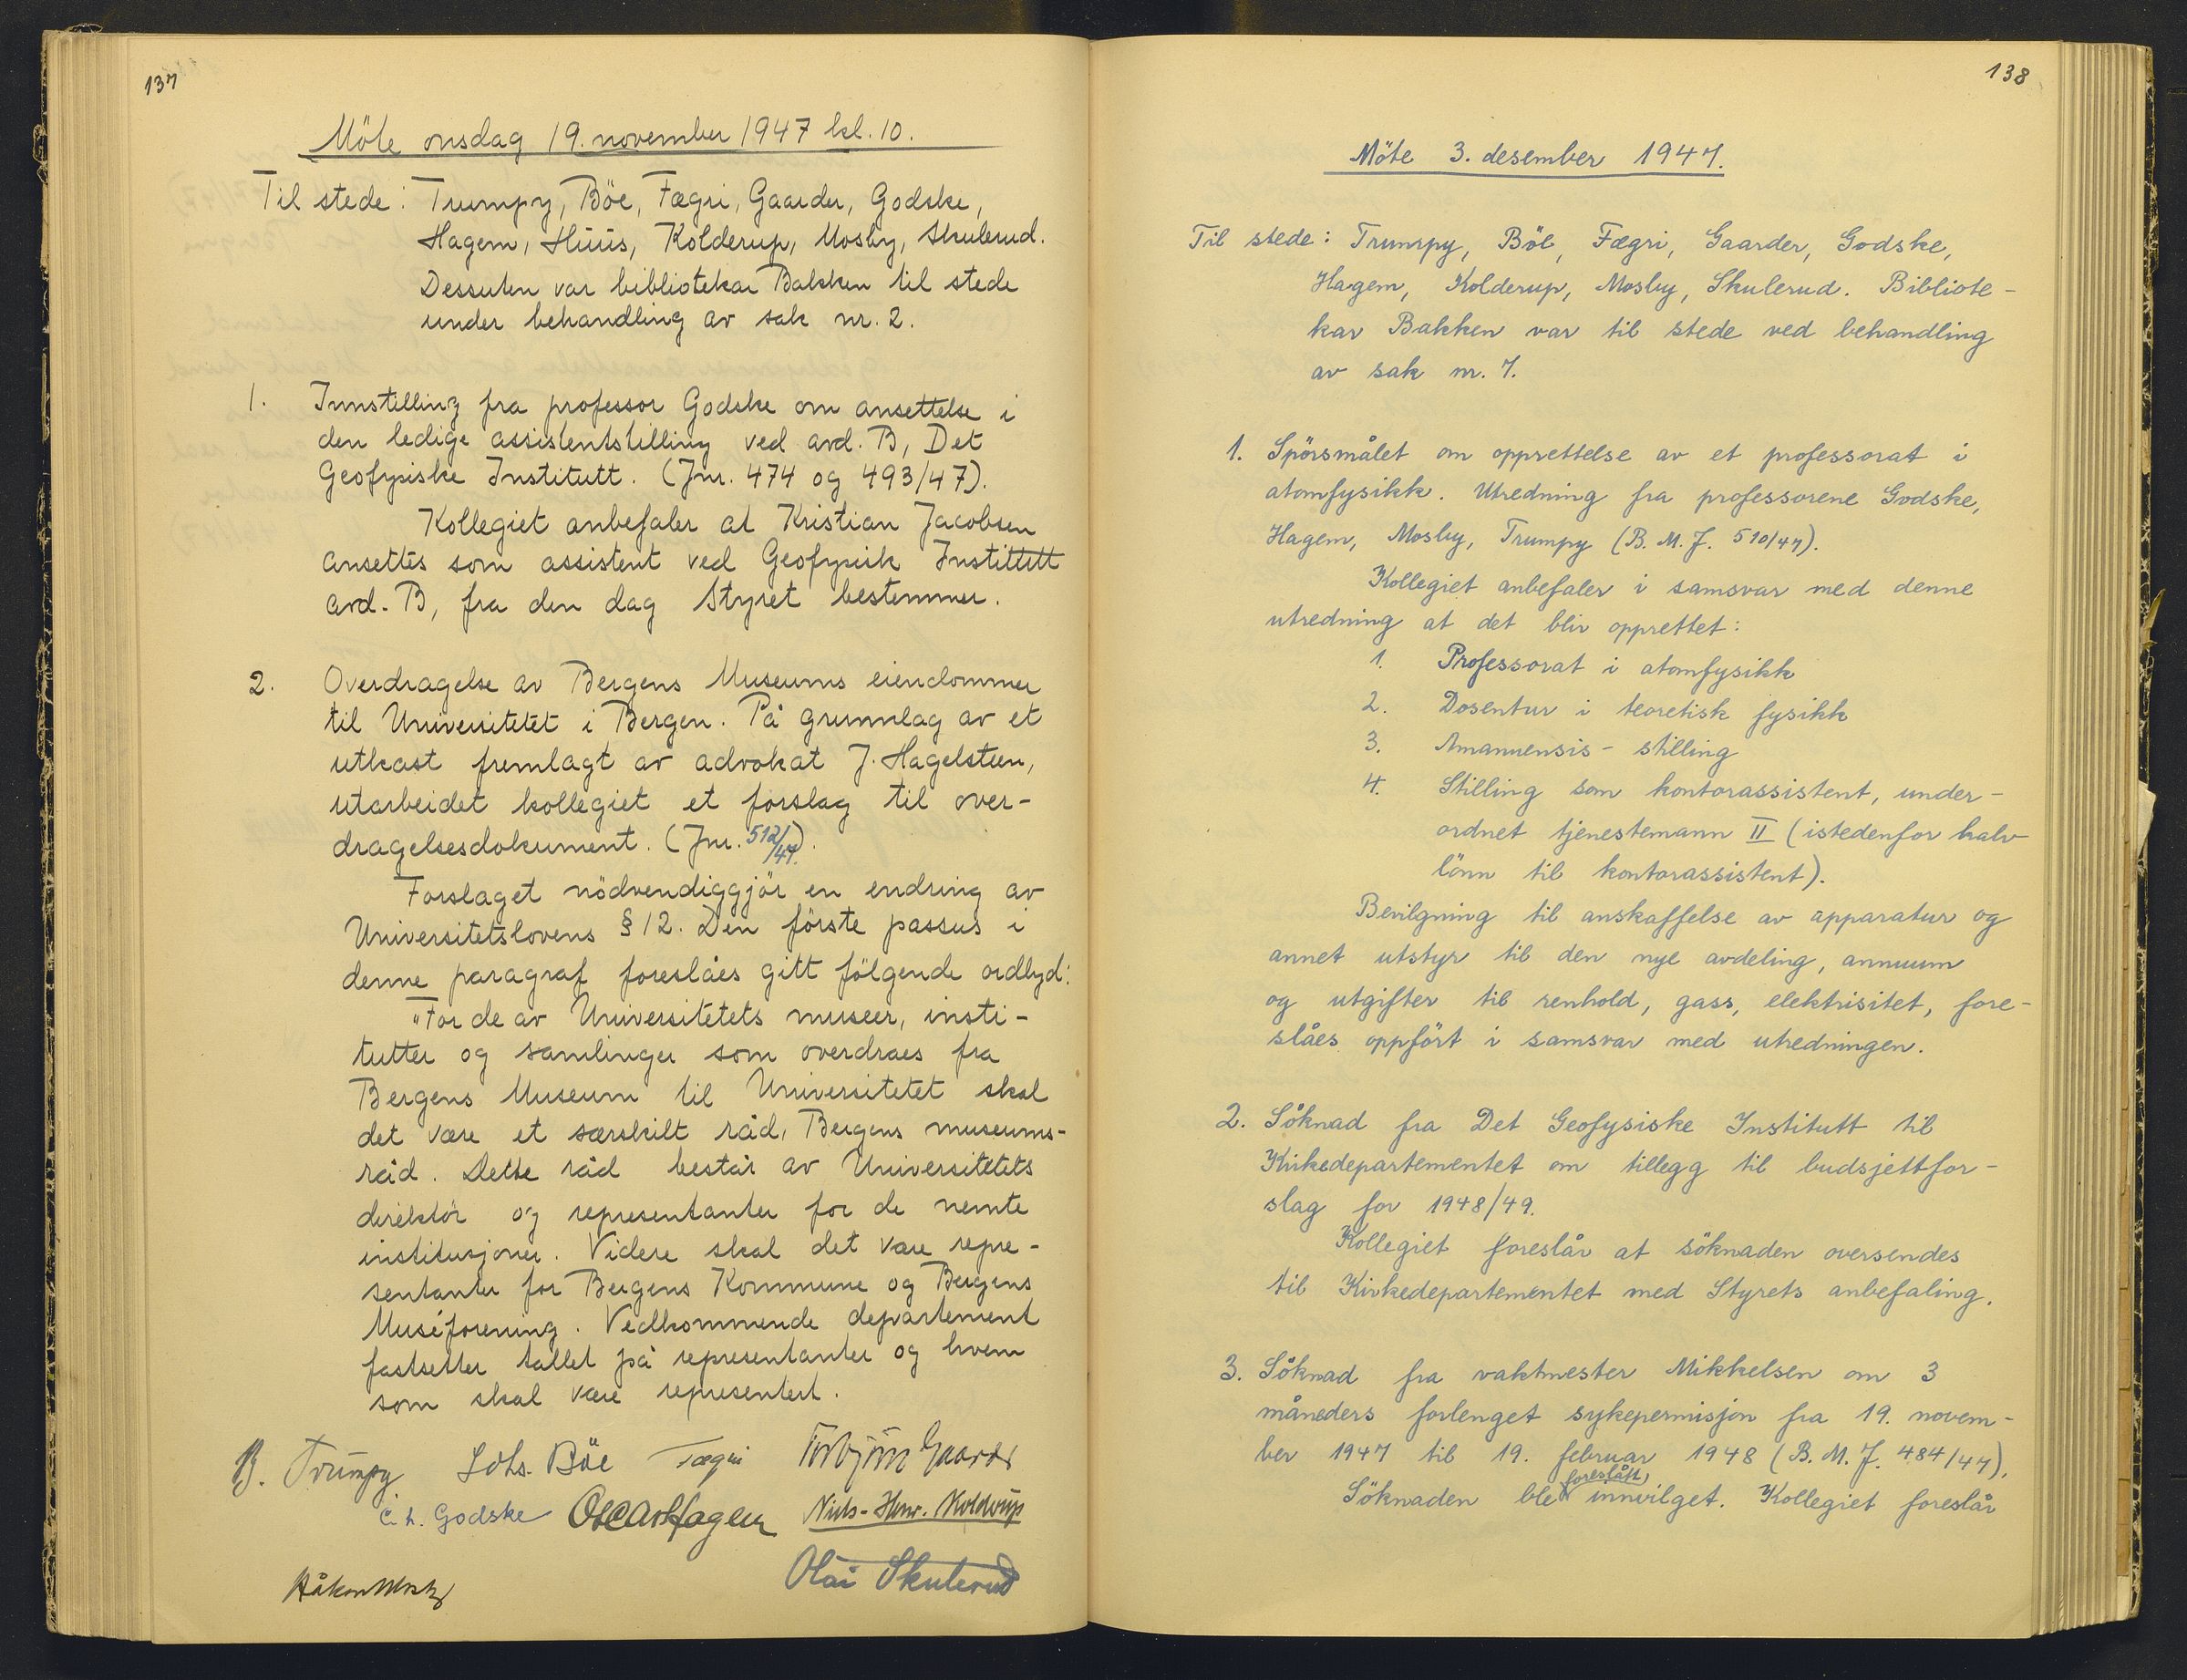 137
Möte onsdag 19. november 1947 kl. 10.
Til stede: Trumpy, Böe, Fægri, Gaarder, Godske,
Hagem, Huus, Kolderup, Mosby, Skulerud.
Dessuten var bibliotekar Bakken til stede
under behandling av sak nr. 2.
1. Innstilling fra professor Godske om ansettelse i
den ledige assistentstilling ved avd. B, Det
Geofysiske Institutt. (Jnr. 474 og 493/47).
Kollegiet anbefaler at Kristian Jacobsen
ansettes som assistent ved Geofysisk Institutt
avd. B, fra den dag Styret bestemmer.
2. Overdragelse av Bergens Museums eiendommer
til Universitetet i Bergen. På grunnlag av et
utkast fremlagt av advokat J. Hagelsteen,
utarbeidet kollegiet et forslag til over-
dragelsesdokument. (Jnr. 512/47).
Forslaget nödvendiggjör en endring av
Universitetslovens § 12. Den förste passus i
denne paragraf foreslåes gitt fölgende ordlyd:
"For de av Universitetets museer, insti-
tutter og samlinger som overdraes fra
Bergens Museum til Universitetet skal
det være et særskilt råd, Bergens museums-
råd. Dette råd består av Universitetets
direktör og representanter for de nemte
institusjoner. Videre skal det være repre-
sentanter for Bergens Kommune og Bergens
Muséforening. Vedkommende departement
fastsetter tallet på representanter og hvem
som skal være representert.
B. Trumpy Johs. Böe Fægri Torbjörn Gaarder
C. L. Godske Oscar Hagem Niels-Henr. Kolderup
Håkon Mosby Olai Skulerud
138
Möte 3. desember 1947.
Til stede: Trumpy, Böe, Fægri, Gaarder, Godske,
Hagem, Kolderup, Mosby, Skulerud. Bibliote-
kar Bakken var til stede ved behandling
av sak nr. 7.
1. Spörsmålet om opprettelse av et professorat i
atomfysikk. Utredning fra professorene Godske,
Hagem, Mosby, Trumpy (B. M. J. 510/47).
Kollegiet anbefaler i samsvar med denne
utredning at det blir opprettet:
1. Professorat i atomfysikk
2. Dosentur i teoretisk fysikk
3. Amanuensis-stilling
4. Stilling som kontorassistent, under-
ordnet tjenestemann II (istedenfor halv
lönn til kontorassistent).
Bevilgning til anskaffelse av apparatur og
annet utstyr til den nye avdeling, annuum
og utgifter til renhold, gass, elektrisitet, fore-
slåes oppfört i samsvar med utredningen.
2. Söknad fra Det Geofysiske Institutt til
Kirkedepartementet om tillegg til budsjettfor-
slag for 1948/49.
Kollegiet foreslår at söknaden oversendes
til Kirkedepartementet med Styrets anbefaling.
3. Söknad fra vaktmester Mikkelsen om 3
måneders forlenget sykepermisjon fra 19. novem-
ber 1947 til 19. februar 1948 (B. M. J. 484/47).
foreslått
Söknaden ble innvilget. Kollegiet foreslår